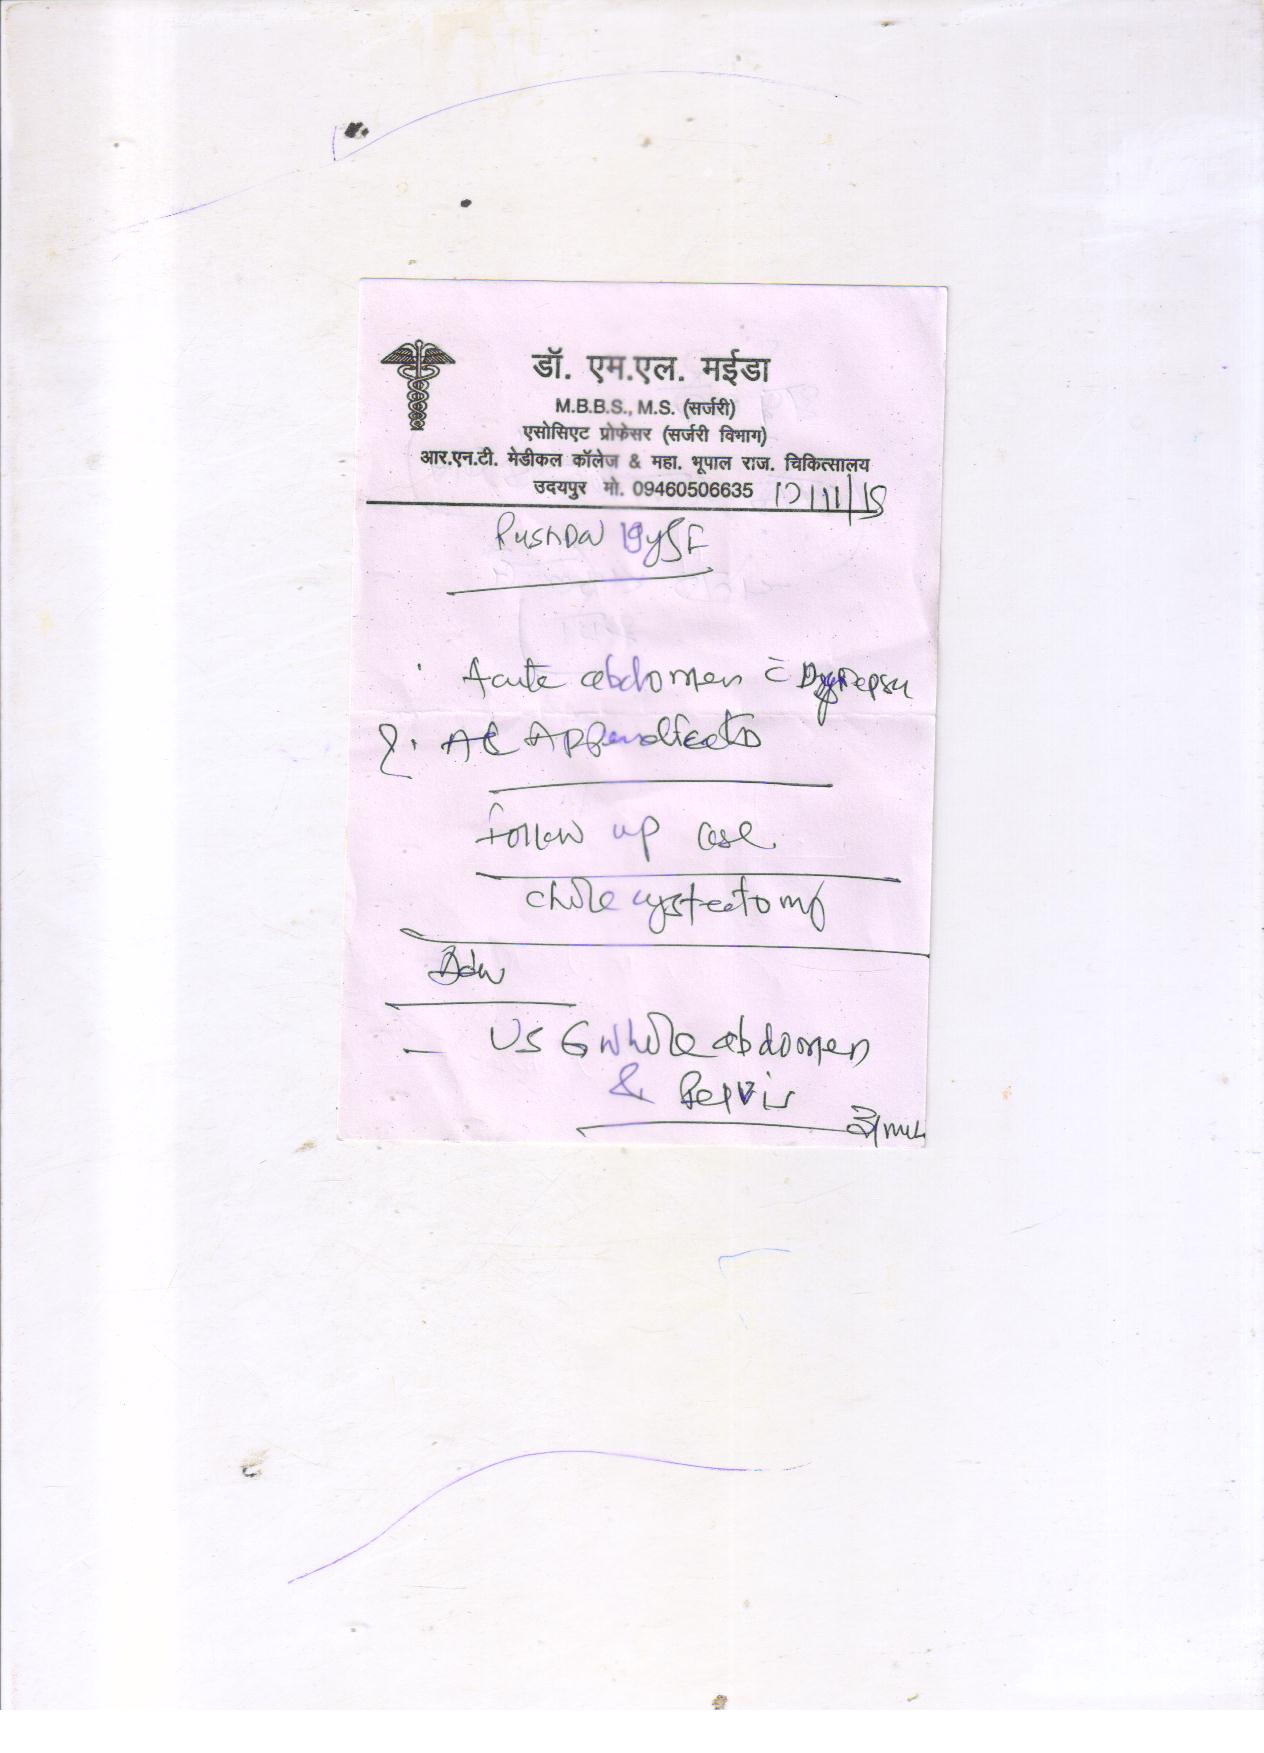 डॉ. एम.एल. मईडा
M.B.B.S., M.S. (सर्जरी)
एसोसिएट प्रोफेसर (सर्जरी विभाग)
आर.एन.टी. मेडीकल कॉलेज & महा. भूपाल राज. चिकित्सालय
उदयपुर मो. 09460506635
Pushpa 19y F
Acute abdomen c̄ Dyspepsia
?. AC Appendicitis
Follow up case
cholecystectomy
Adv
— USG whole abdomen
& Pelvis